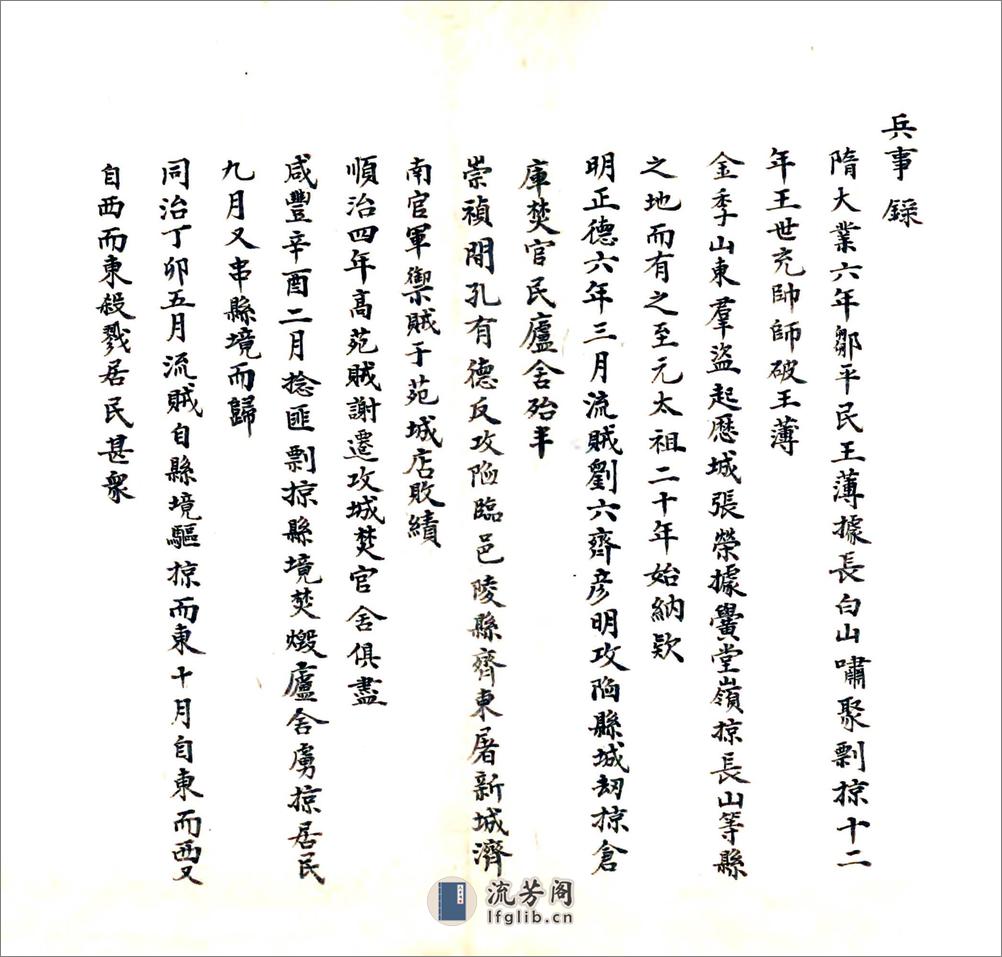 兵事錄
隋大業六年鄒平民王薄據長白山嘯聚剽掠十二
年王世充帥師破王薄
金季山東羣盜起歷城張榮據黌堂嶺掠長山等縣
之地而有之至元太祖二十年始納欵
明正德六年三月流賊劉六齊彦明攻陷縣城刼掠倉
庫焚官民廬舍殆半
崇禎間孔有德反攻陷臨邑陵縣齊東屠新城濟
南官軍禦賊于苑城店敗績
順治四年高苑賊謝遷攻城焚官舍俱盡
咸豐辛酉二月捻匪剽掠縣境焚燬廬舍虜掠居民
九月又串縣境而歸
同治丁卯五月流賊自縣境驅掠而東十月自東而西又
自西而東殺戮居民甚衆
流芳阁
lfglib.cn